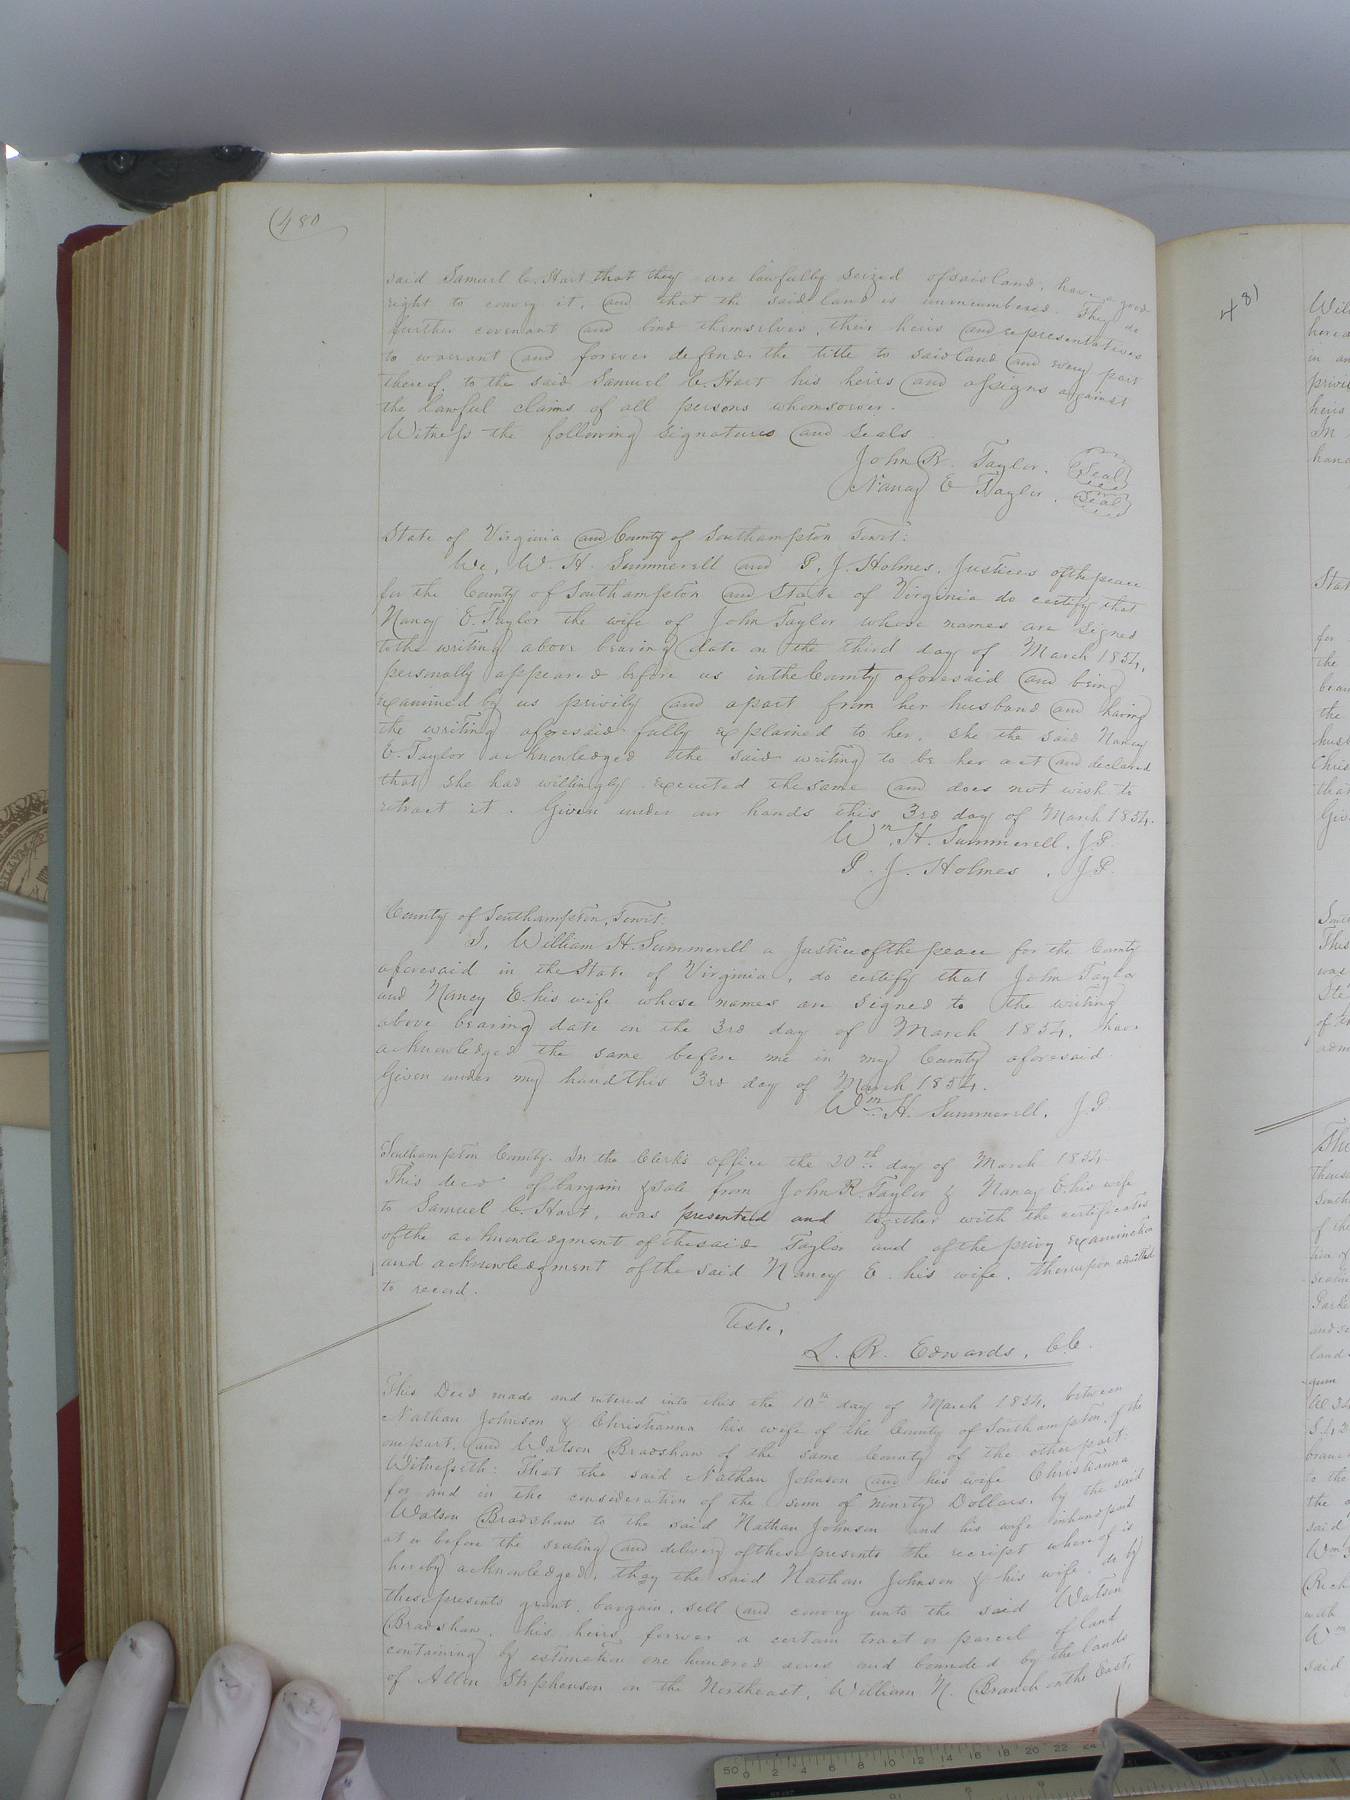 (480
said Samuel C. Hart that they are lawfully seized of said land, have a good
right to convey it, and that the said land is unencumbered. They do
further covenant and bind themselves, their heirs and representatives
to warrant and forever defend the title to said land and every part
thereof, to the said Samuel C. Hart his heirs and assigns against
the lawful claims of all persons whomsoever.
Witness the following signatures and seals
John R. Taylor. Seal
Nancy E Taylor. Seal
State of Virginia and County of Southampton Towit:
We, W. H. Summerell and P. J. Holmes, Justices of the peace
for the County of Southampton and State of Virginia do certify that
Nancy E. Taylor the wife of John Taylor whose names are signed
to the writing above bearing date on the third day of March 1854,
personally appeared before us in the County aforesaid and being
examined by us privily and apart from her husband and having
the writing aforesaid fully explained to her, she the said Nancy
E. Taylor acknowledged the said writing to be her act and declared
that she had willingly executed the same and does not wish to
retract it. Given under our hands this 3rd day of March 1854.
Wm. H. Summerell, J.P.
P. J. Holmes, J.P.
County of Southampton, Towit:
I, William H. Summerell a Justice of the peace for the County
aforesaid in the State of Virginia, do certify that John Taylor
and Nancy E. his wife whose names are signed to the writing
above bearing date on the 3rd day of March 1854, have
acknowledged the same before me in my County aforesaid.
Given under my hand this 3rd day of March 1854.
Wm H. Summerell, J.P.
Southampton County. In the Clerk's office the 20th day of March 1854
This deed of bargain & sale from John R. Taylor & Nancy E. his wife
to Samuel C. Hart, was presented and together with the certificates
of the acknowledgment of the said Taylor and of the privy examination
and acknowledgment of the said Nancy E. his wife, thereupon admitted
to record.
Teste,
L. R. Edwards, C.C.
This Deed made and entered into this the 10th day of March 1854, between
Nathan Johnson & Christianna his wife of the County of Southampton, of the
one part, and Watson Bradshaw of the same County of the other part:
Witnesseth: That the said Nathan Johnson and his wife Christianna
for and in the consideration of the sum of ninety Dollars, by the said
Watson Bradshaw to the said Nathan Johnson and his wife in hand paid
at or before the sealing and delivery of these presents the receipt whereof is
hereby acknowledged, they the said Nathan Johnson & his wife do by
these presents grant, bargain, sell and convey unto the said Watson
Bradshaw, his heirs forever a certain tract or parcel of land
containing by estimation one hundred acres and bounded by the lands
of Allen Stephenson on the Northeast, William N. Branch on the East,
481